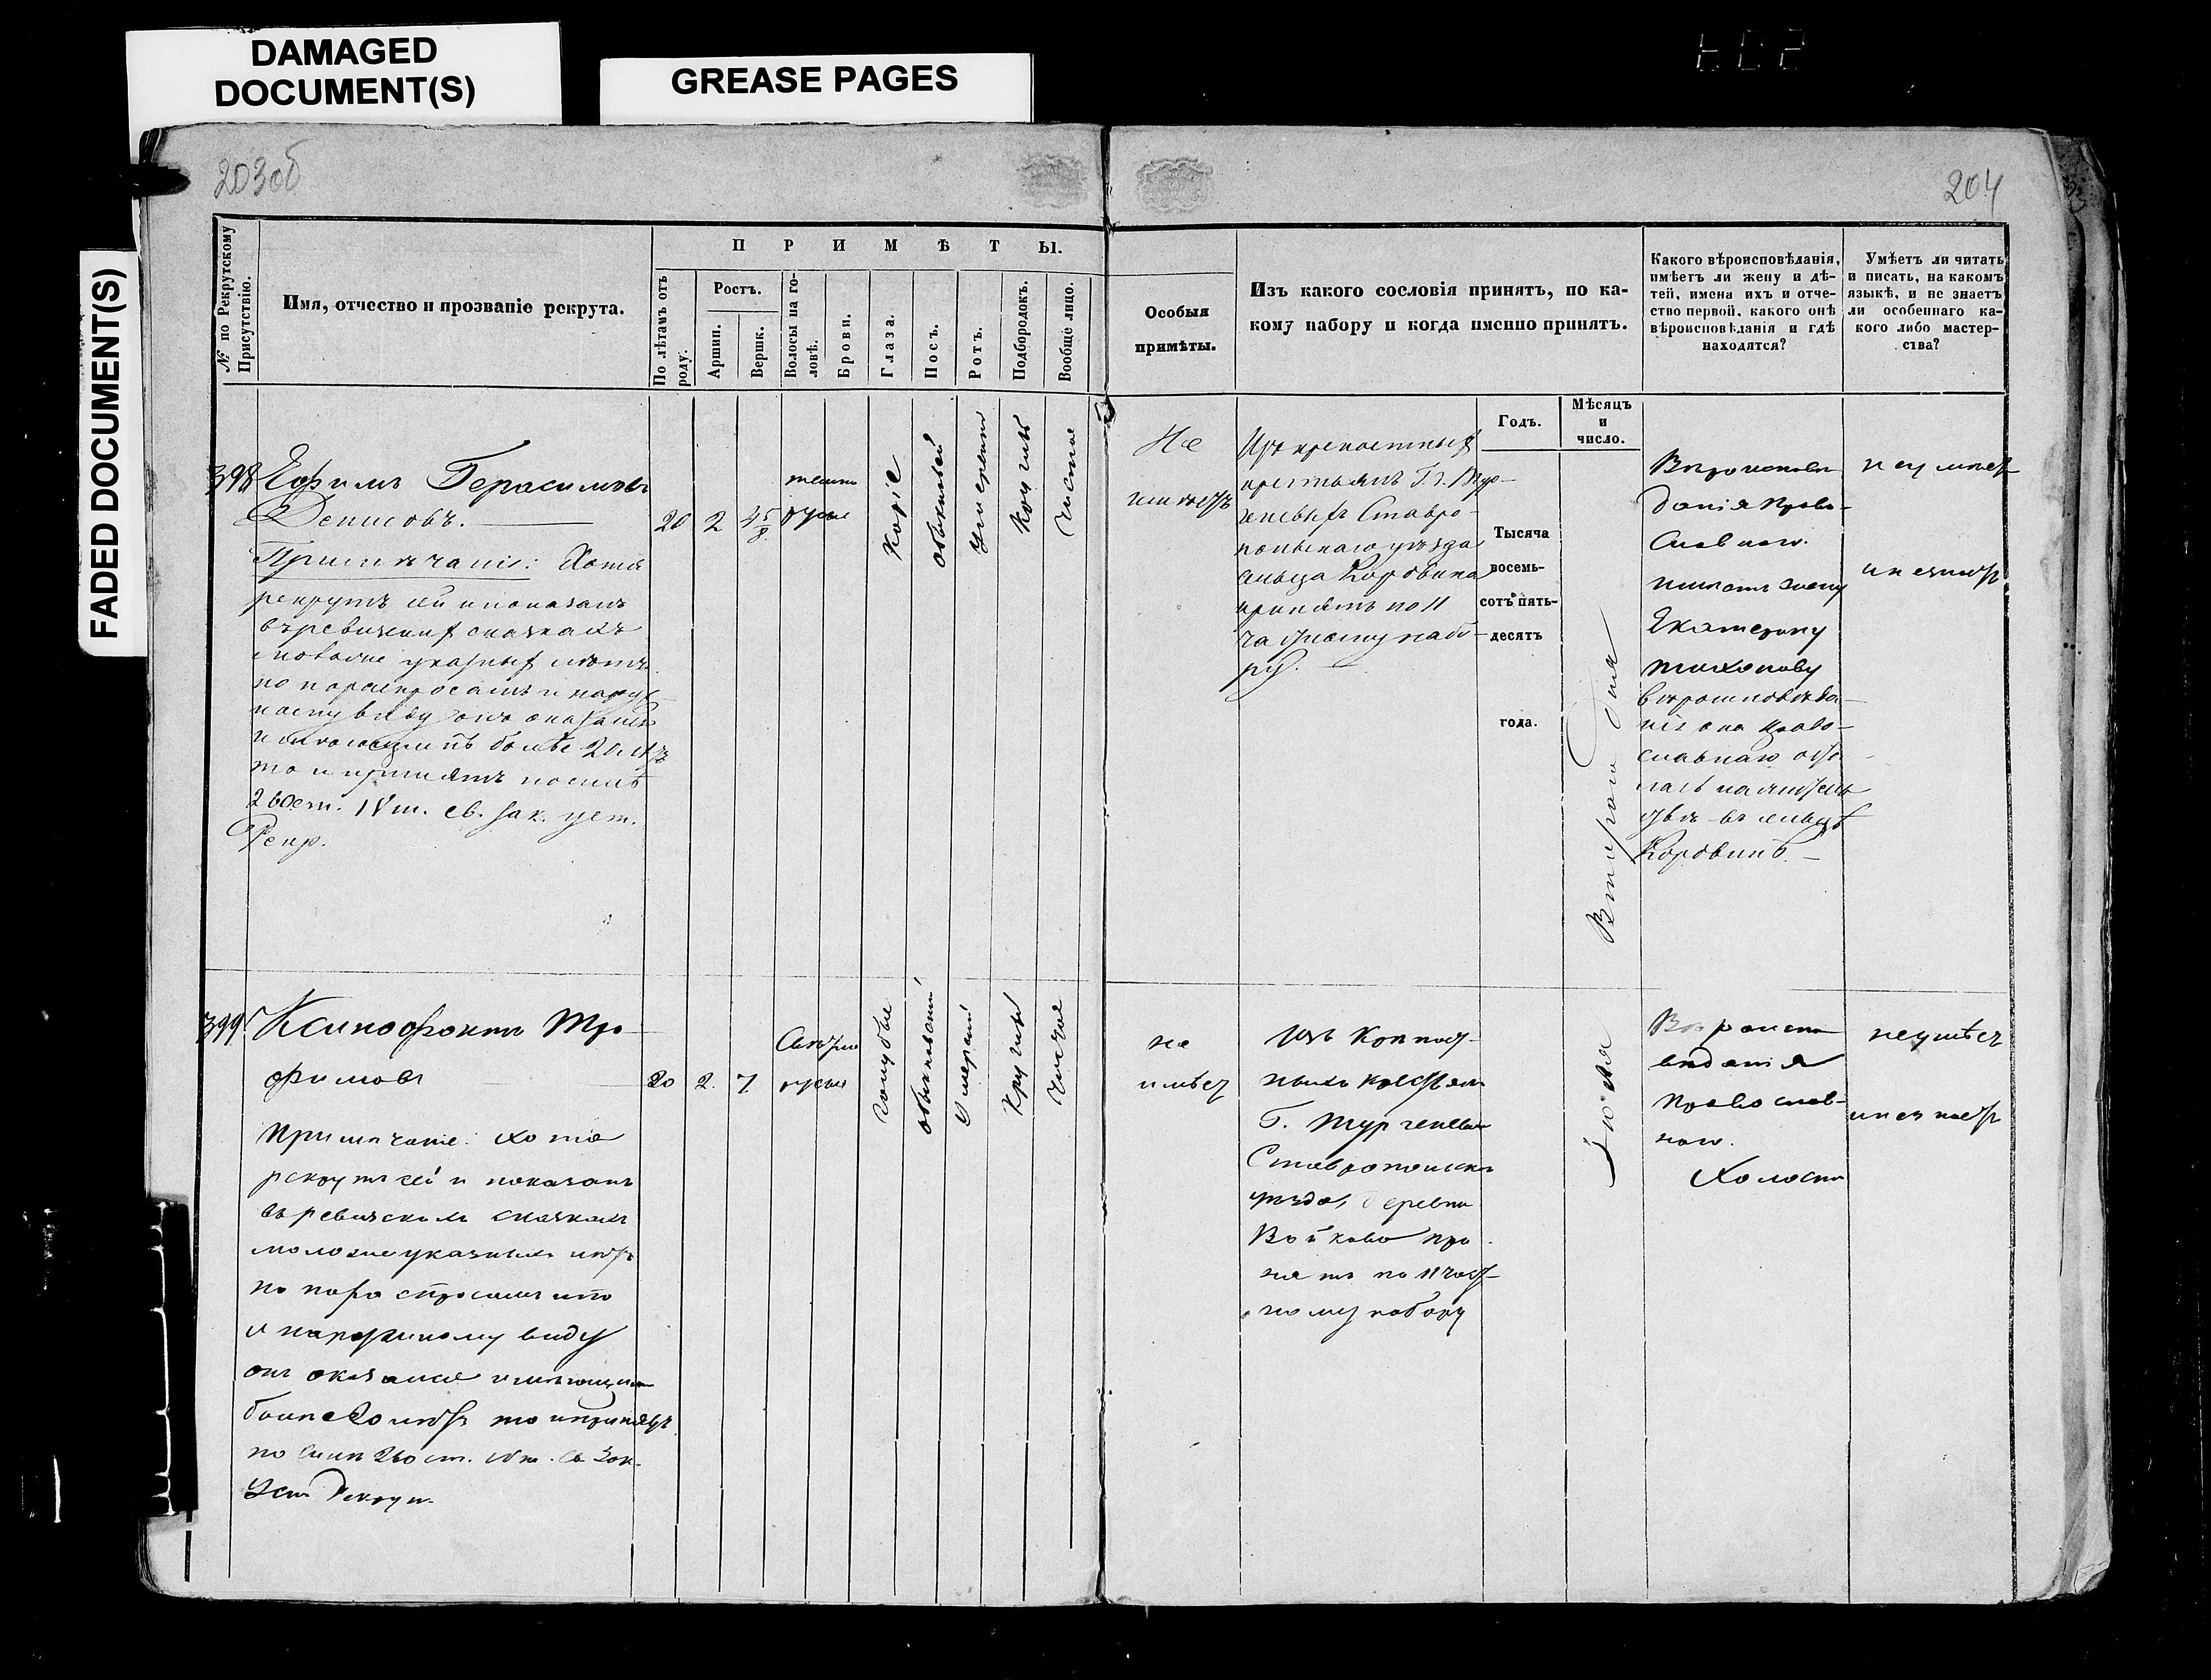 DAMAGED
DOCUMENT(S)
GREASE PAGES
FADED DOCUMENT(S)
203об
204
№ по Рекрутскому
Присутствію.
Имя, отчество и прозваніе рекрута.
ПРИМѢТЫ.
По лѣтамъ отъ
роду.
Ростъ.
Аршин.
Вершк.
Волосы на го-
ловѣ.
Брови.
Глаза.
Носъ.
Ротъ.
Подбородокъ.
Вообще лицо.
Особыя
примѣты.
Изъ какого сословія принятъ, по ка-
кому набору и когда именно принятъ.
Какого вѣроисповѣданія,
имѣетъ ли жену и дѣ-
тей, имена ихъ и отче-
ство первой, какого онѣ
вѣроисповѣданія и гдѣ
находятся?
Умѣетъ ли читать
и писать, на какомъ
языкѣ, и не знаетъ
ли особеннаго ка-
кого либо мастер-
ства?
Годъ.
Мѣсяцъ
и
число.
Тысяча
восемь-
сотъ пять-
десятъ
года.
398
Ефимъ Герасимовъ
Денисовъ.
Примѣчаніе: Хотя
рекрутъ сей и показанъ
въ ревизскихъ сказкахъ
моложе указныхъ лѣтъ
но по распросамъ и наруж-
ному виду онъ оказался
имѣющимъ болѣе 20 лѣтъ
то и принятъ по силѣ
260 ст. IV т. св. зак. уст.
Рекр.
20
2
4 5/8
темно
русые
Каріе
обыкновен
умеренный
Круглый
Чистое
Не
имѣетъ
Изъ крепостныхъ
крестьянъ Г. Тур-
геневыхъ Ставро-
польскаго уѣзда
сельца Коровина
принятъ по 11
частному набо-
ру.
Втораго Дня
Іюля
Вероисповѣ
данія Право-
славнаго.
имѣетъ жену
Екатерину
Тихонову
вѣроисповѣда-
нія она право-
славнаго оста
лась на жительст
вѣ въ сельцѣ
Коровинѣ.
неумѣетъ
инезнаетъ
399.
Ксинофонтъ Тро-
фимовъ
Примѣчаніе: хотя
рекрутъ сей и показанъ
въ ревизскихъ сказкахъ
моложе указныхъ лѣтъ
но по распросамъ его
и наружному виду
онъ оказался имѣющимъ
болѣе 20 лѣтъ то и принятъ
по силѣ 260 ст. IV т. Св Зак.
Уст Рекрут.
20
2.
7
Светло
русые
голубые
обыкновенный
умерен
Круглый
чистое
не
имѣет
Изъ крепост-
ныхъ крестьянъ
Г. Тургенева
Ставропольск
уѣзда, деревни
Войкова при
нятъ по 11 част-
ному набору
Вѣроиспо
веданія
Православ-
наго.
Холостъ
неумѣет
инезнаетъ